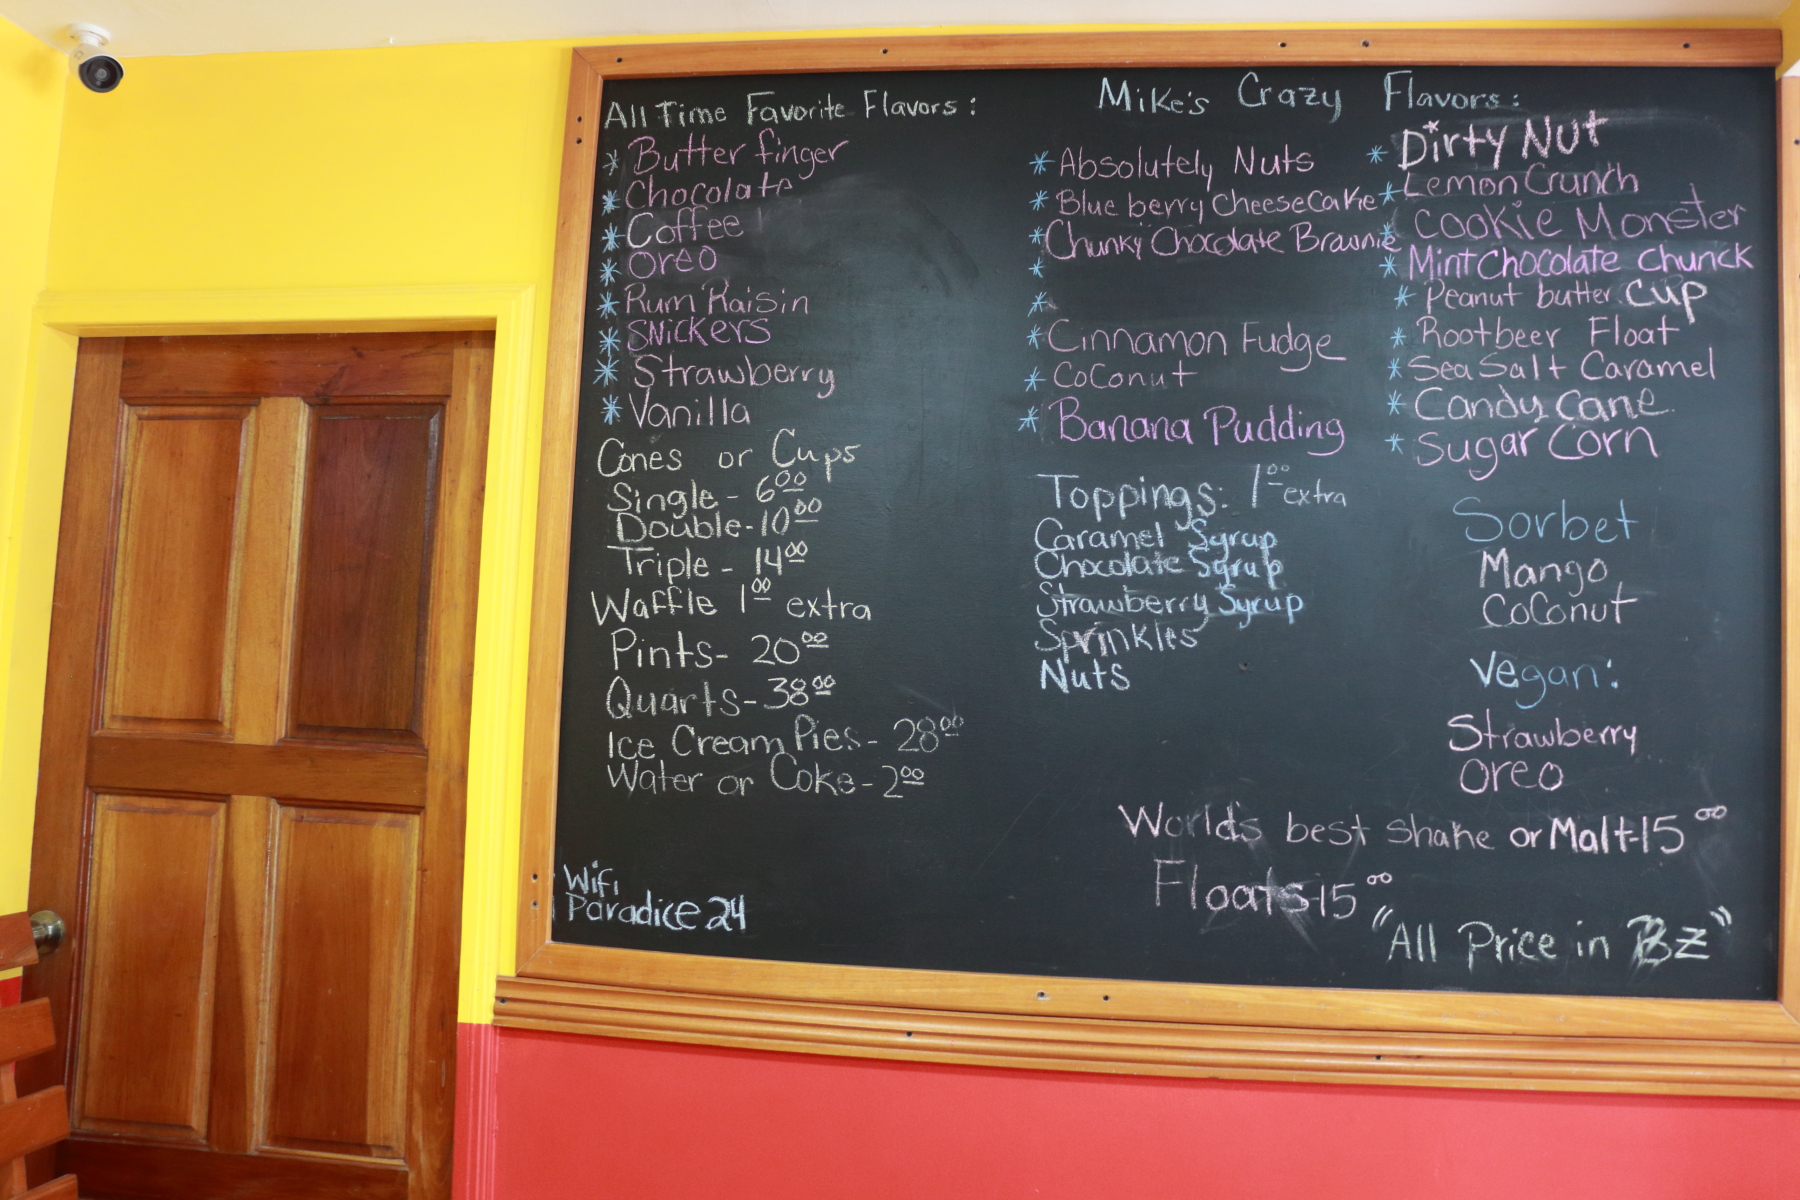 All Time Favorite Flavors:
* Butter finger
* Chocolate
* Coffee
* Oreo
* Rum Raisin
* SNickers
* Strawberry
* Vanilla
Cones or Cups
Single - 6.00
Double - 10.00
Triple - 14.00
Waffle 1.00 extra
Pints - 20.00
Quarts - 38.00
Ice Cream Pies - 28.00
Water or Coke - 2.00
Wifi
Paradice 24
Mike's Crazy Flavors:
* Absolutely Nuts
* Blue berry CheeseCake
* Chunky Chocolate Brawnie
*
*
* Cinnamon Fudge
* CoConut
* Banana Pudding
* Dirty Nut
* Lemon Crunch
* Cookie Monster
* Mint Chocolate chunck
* Peanut butter cup
* Rootbeer Float
* Sea Salt Caramel
* Candy Cane
* Sugar Corn
Toppings: 1.00 extra
Caramel Syrup
Chocolate Syrup
Strawberry Syrup
Sprinkles
Nuts
Sorbet
Mango
CoConut
Vegan:
Strawberry
Oreo
World's best shake or Malt-15.00
Floats-15.00
"All Price in BZ"